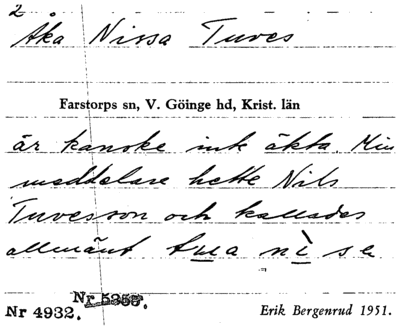 2
Åka Nissa Tuves
Farstorps sn, V. Göinge hd, Krist. län
är kanske int äkta. Min
meddelare hette Nils
Tuvesson och kallades
allmänt tua nìsa
Nr 5355.
Nr 4932.
Erik Bergenrud 1951.